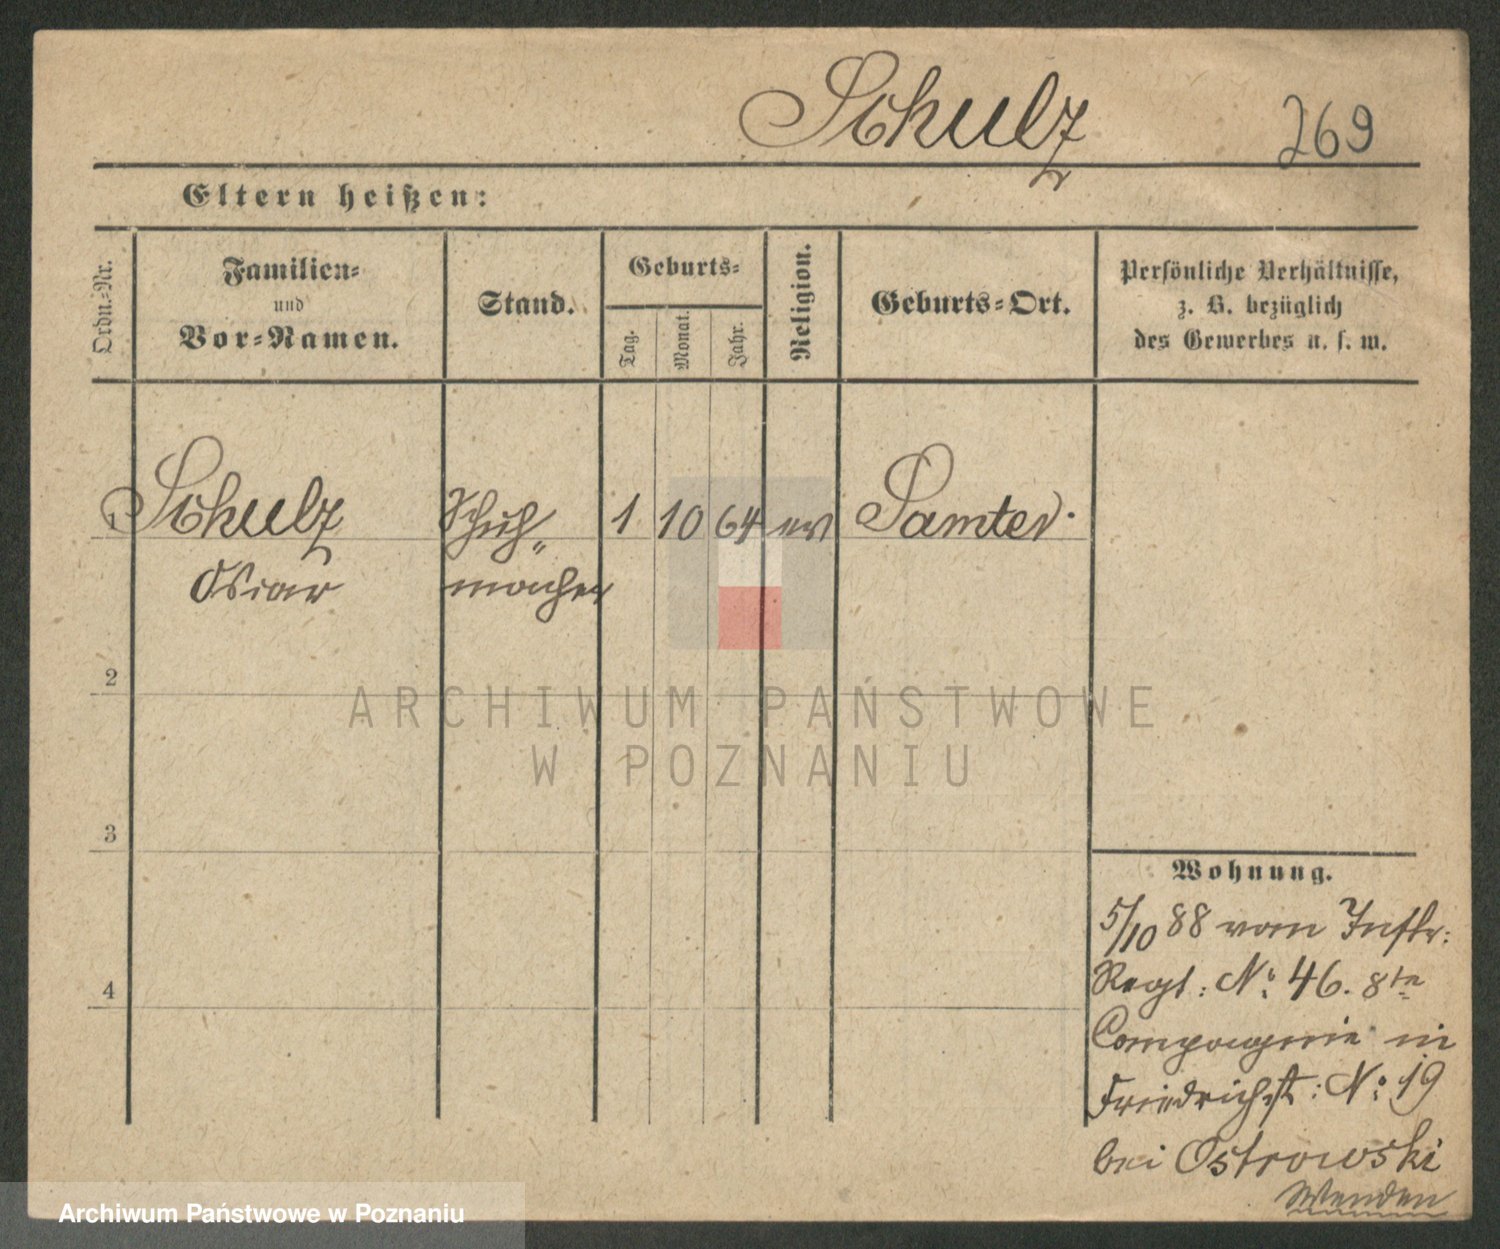 Schulz 269
Eltern heißen:
Ordn.-Nr.
Familien-
und
Vor-Namen.
Stand.
Geburts-
Tag.
Monat.
Jahr.
Religion.
Geburts-Ort.
Persönliche Verhältnisse,
z. B. bezüglich
des Gewerbes u. s. w.
1 Schulz Schuh- 1 10 64 ev Samter.
Oscar macher
2
3
4
Wohnung.
5/10 88 vom Inftr:
Regt: No: 46. 8te
Compagnie in
Friedrichst: No: 19
bei Ostrowski
Wenden
ARCHIWUM PAŃSTWOWE
W POZNANIU
Archiwum Państwowe w Poznaniu